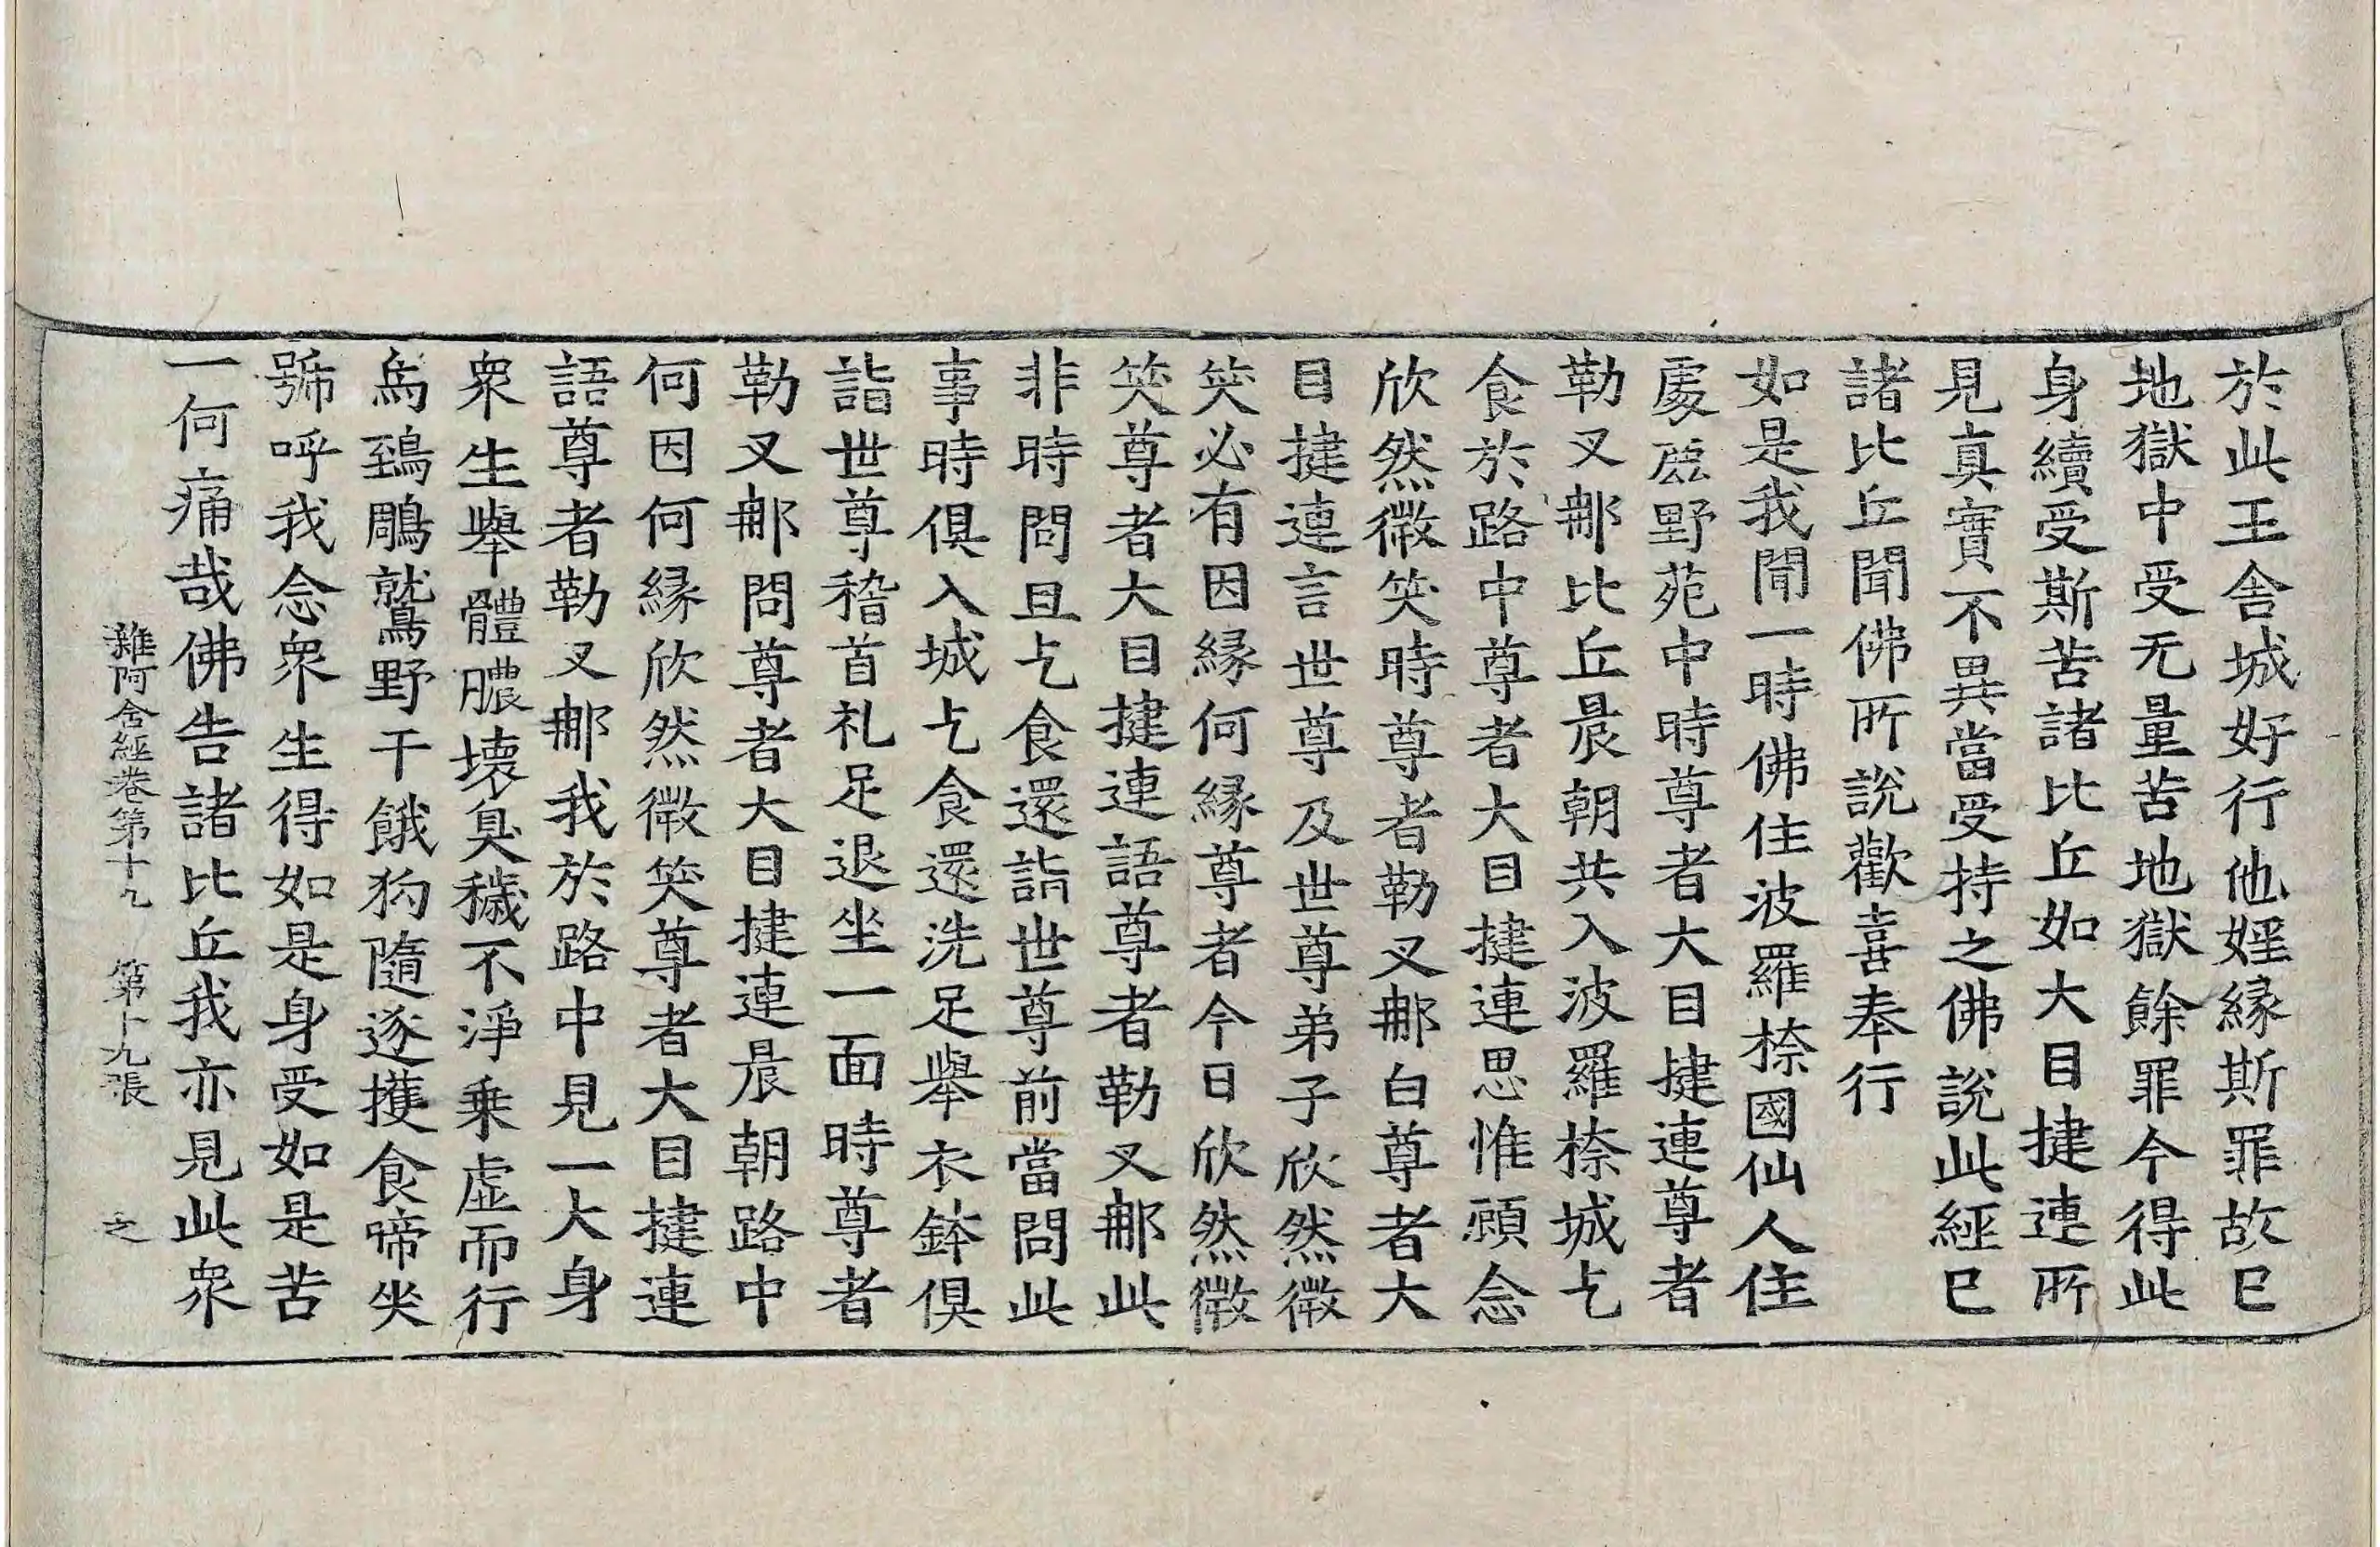 於此王舍城好行他婬緣斯罪故已
地獄中受无量苦地獄餘罪今得此
身續受斯苦諸比丘如大目揵連所
見真實不異當受持之佛說此經已
諸比丘聞佛所說歡喜奉行
如是我聞一時佛住波羅㮈國仙人住
處鹿野苑中時尊者大目揵連尊者
勒叉𨚗比丘晨朝共入波羅㮈城乞
食於路中尊者大目揵連思惟顧念
欣然微笑時尊者勒叉𨚗白尊者大
目揵連言世尊及世尊弟子欣然微
笑必有因緣何緣尊者今日欣然微
笑尊者大目揵連語尊者勒叉𨚗此
非時問且乞食還詣世尊前當問此
事時俱入城乞食還洗足舉衣鉢俱
詣世尊稽首礼足退坐一面時尊者
勒叉𨚗問尊者大目揵連晨朝路中
何因何緣欣然微笑尊者大目揵連
語尊者勒叉𨚗我於路中見一大身
衆生舉體膿壞臭穢不淨乗虛而行
烏鵄鵰鷲野干餓狗隨逐攫食啼哭
號呼我念衆生得如是身受如是苦
一何痛哉佛告諸比丘我亦見此衆
雜阿含經卷第十九 第十九張 之